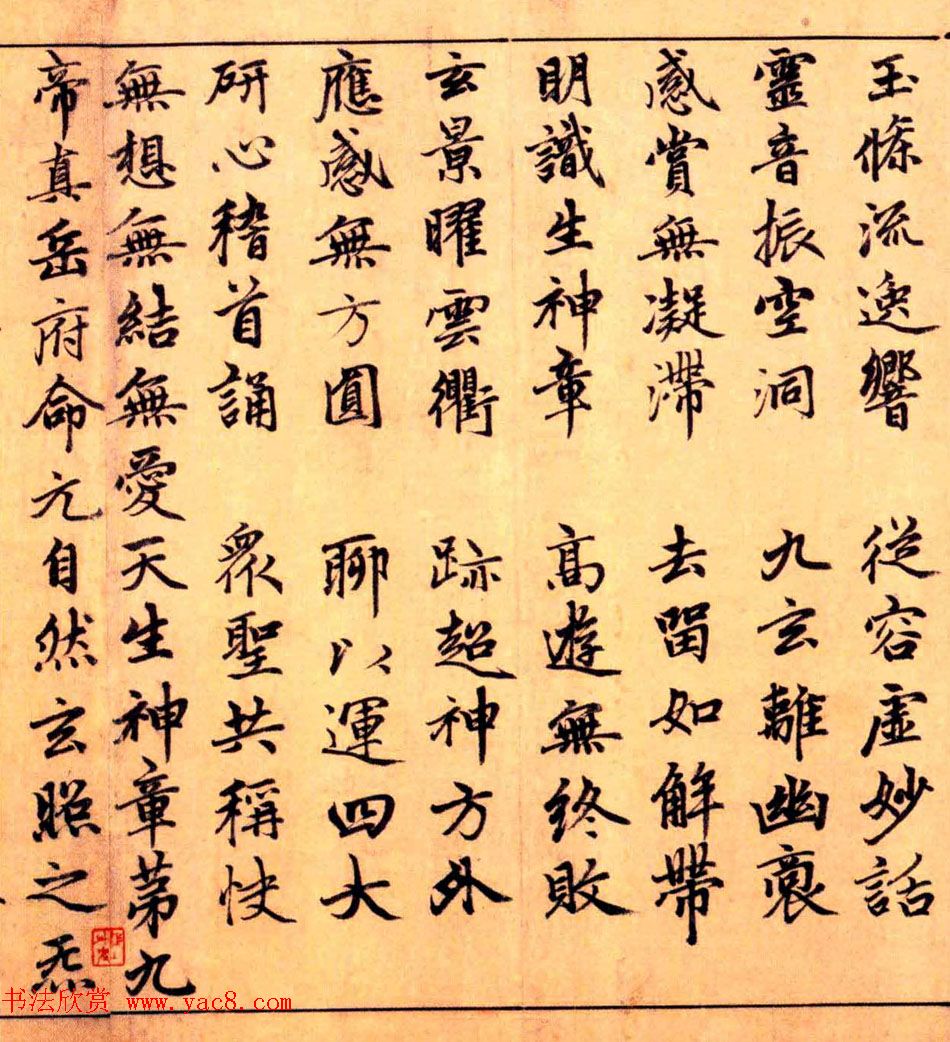 玉條流逸響 從容虛妙話
靈音振空洞 九玄離幽裔
感賞無凝滯 去留如解帶
明識生神章 高遊無終敗
玄景曜雲衢 跡超神方外
應感無方圓 聊以運四大
研心稽首誦 眾聖共稱快
無想無結無愛天生神章第九
帝真岳府命元自然玄照之炁
书法欣赏 www.yac8.com